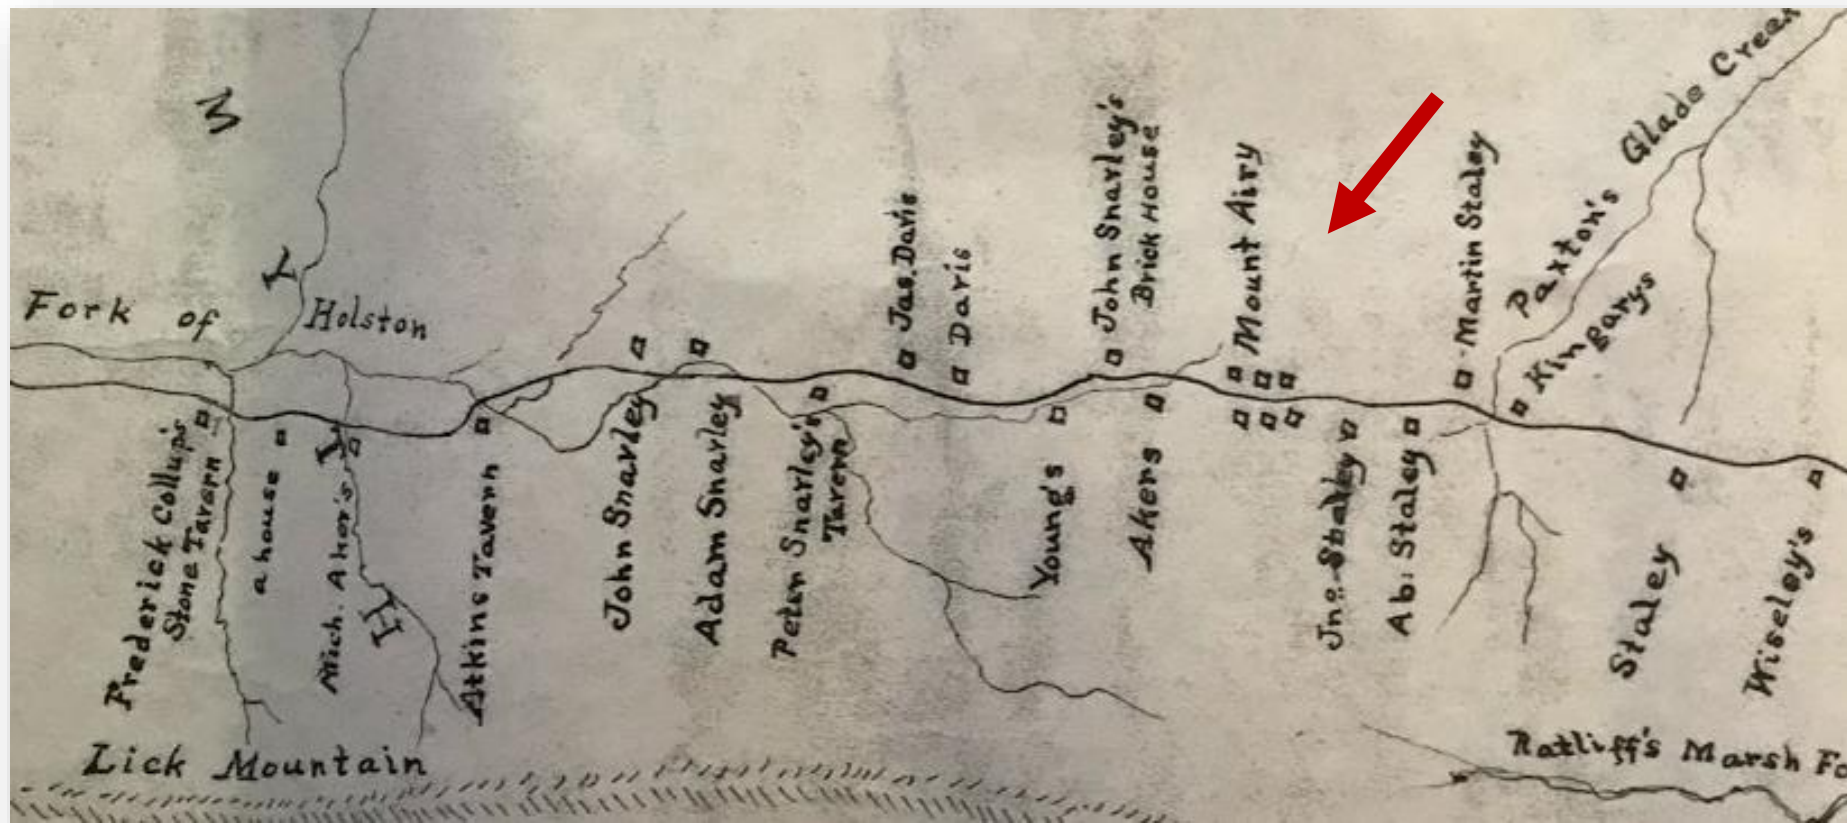 W
Y
T
H
Fork of Holston
Frederick Collup's
Stone Tavern
a house
Mich. Ahor's
Atkins Tavern
John Snarley
Adam Snarley
Peter Snarley's
Tavern
Jas. Davis
Davis
Young's
John Snarley's
Brick House
Akers
Mount Airy
Jno. Staley
Ab: Staley
Martin Staley
Paxton's Glade Creek
Kingarys
Staley
Wiseley's
Lick Mountain
Ratliff's Marsh Fo